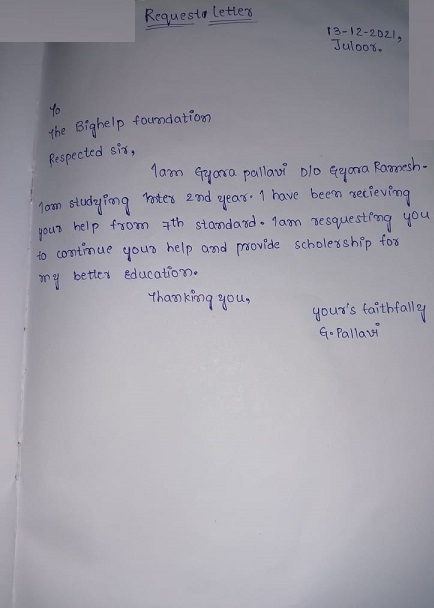 Requesto letter
13-12-2021,
Juloor.
To
the Bighelp foundation
Respected sir,
Iam Gyara pallavi D/O Gyara Ramesh.
Iam studying Inter 2nd year. I have been recieving
your help from 7th standard. Iam resquesting you
to continue your help and provide scholership for
my better education.
Thanking you,
your's faithfally
G. Pallavi